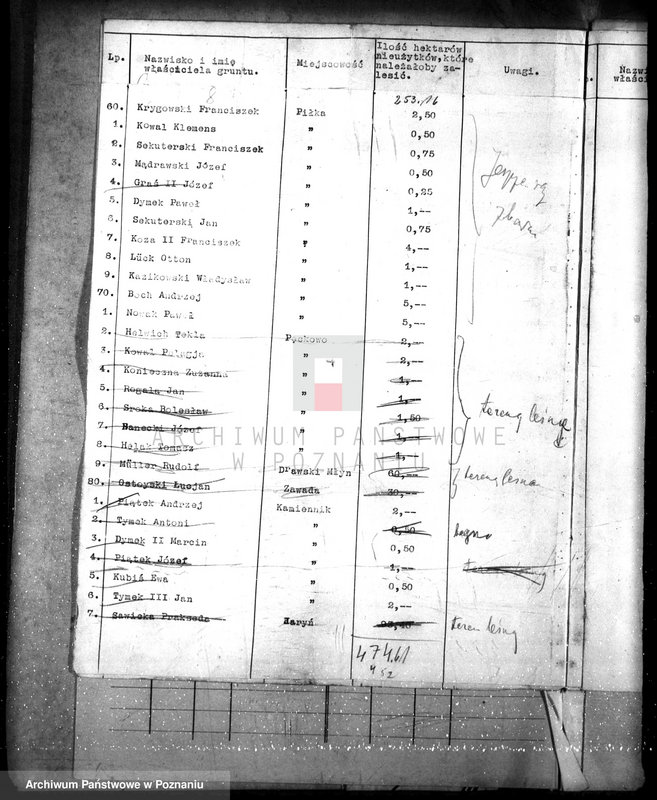 Lp. Nazwisko i imię właściciela gruntu. Miejscowość Ilość hektarów nieużytków, które należałoby zalesić. Uwagi.
253.16
60. Krygowski Franciszek Piłka 2,50
1. Kowal Klemens " 0,50
2. Sekuterski Franciszek " 0,75
3. Mądrawski Józef " 0,50
4. Graś II Józef " 0,25
5. Dymek Paweł " 1,--
6. Sekuterski Jan " 0,75
7. Koza II Franciszek " 4,--
8. Lück Otton " 1,--
9. Kazikowski Władysław " 1,--
70. Bach Andrzej " 5,--
1. Nowak Paweł " 5,--
2. Helwich Tekla Pęckowo 2,--
3. Kowal Pelagja " 2,--
4. Konieczna Zuzanna " 1,--
5. Rogala Jan " 1,--
6. Sroka Bolesław " 1,50
tereny leśny
7. Banecki Józef " 1,--
8. Helak Tomasz " 1,--
9. Müller Rudolf Drawski Młyn 60,--
80. Ostoyski Lucjan Zawada 30,--
1. Piątek Andrzej Kamiennik 2,--
2. Tymek Antoni " 0,50 bagno
3. Dymek II Marcin " 0,50
4. Piątek Józef " 1,--
5. Kubiś Ewa " 0,50
6. Tymek III Jan " 2,--
7. Sawicka Prakseda Maryń teren leśny
474.61
452
Nazw
właści
ARCHIWUM PAŃSTWOWE
W POZNANIU
Archiwum Państwowe w Poznaniu